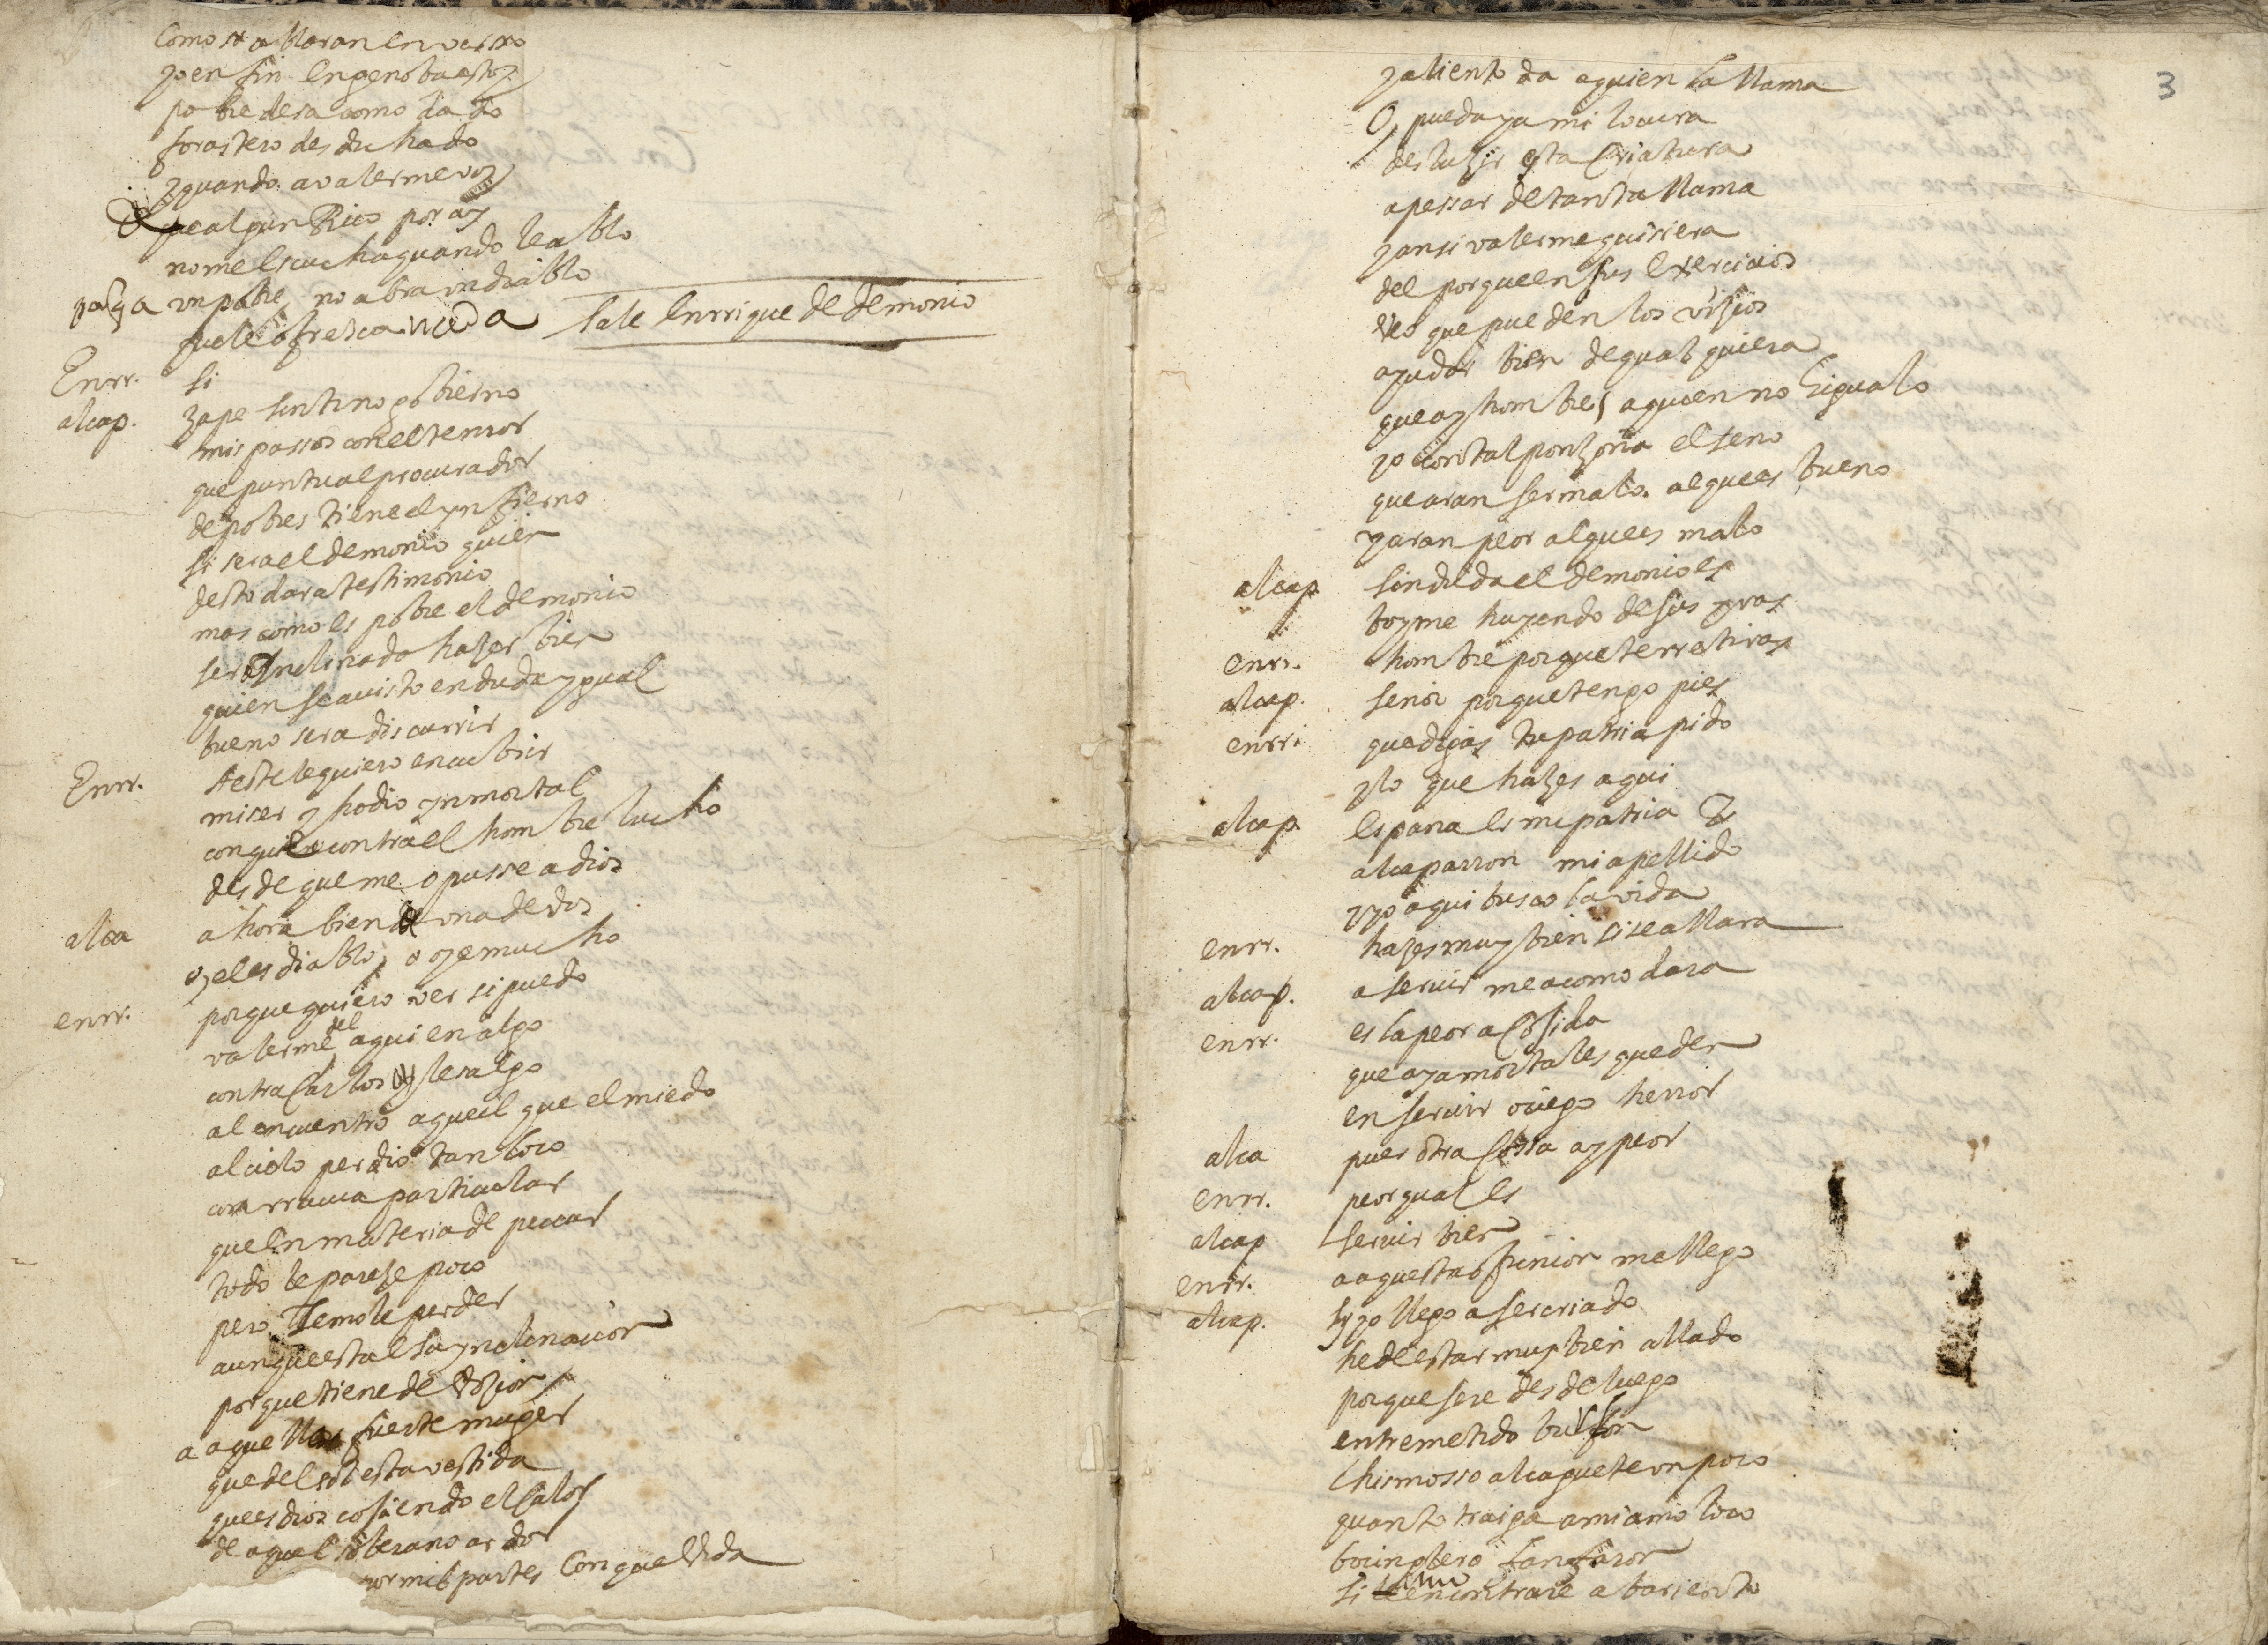 como se allaran en verso
yo en fin en genoba estoy
pobre desacomodado
forastero desdichado
y quando a valerme voy
de algun Rico por ay
no me escucha quando le ablo
para un pobre no abra un diablo
que le ofresca
Sale Enrrique de demonio
Enrr. si
alcap. zape sin tino gobierno
mis passos con el temor
que puntual procurador
de pobres tiene el ynfierno
si sera el demonio quien
desto dara testimonio
mas como es pobre el demonio
sera ynclinado hazer bien
quien se a visto en duda ygual
bueno sera discurrir
Enrr. A este le quiero encubrir
mi ser y hodio ynmortal
con que contra el hombre lucho
desde que me opusse a dios
alca ahora bien una de dos
o el es diablo o oye mucho
enrr. porque quiero ver si puedo
valerme del aqui en algo
contra Carlos y le salgo
al encuentro aquel que el miedo
al cielo perdio tan loco
con rruina particular
que en materia de peccar
todo le pareze poco
pero temole perder
aunque esta es su ynclinacion
porque tiene debozion
a aquella fuerte muger
que del sol esta vestida
que es dios cosiendo el calor
de aquel soberano ardor
por mil partes con que vida
3
y aliento da a quien la llama
O, pueda ya mi locura
desluzir esta criatura
a pessar de tanta llama
y ansi valerme quisiera
del porque en sus exercicios
veo que pueden los vizios
ayudar bien de qualquiera
que ay hombres a quien no higualo
yo con tal ponzoña el seno
que aran ser malo al que es bueno
y aran peor al que es malo
alcap. sin duda el demonio es
boyme huyendo de sus yras
enrr. hombre porque te rretiras
alcap. señor porque tengo pies
enrr. que digas tu patria pido
y lo que hazes aqui
alcap. españa es mi patria
alcaparron mi apellido
y yo aqui busco la vida
enrr. hazes muy bien si se allara
alcap. a servir me acomodara
enrr. es la peor acojida
que aya mortales que den
en servir ciego herror
alca pues otra cossa ay peor
enrr. peor qual es
alcap servir bien
enrr. a aquesta opinion me llego
alcap. si yo llego a ser criado
he de estar muy bien allado
porque sere desde luego
entremetido bufon
chismosso alcaguete un poco
quanto traiga a mi amo loco
bocinglero fanfaron
si encontrare abariento